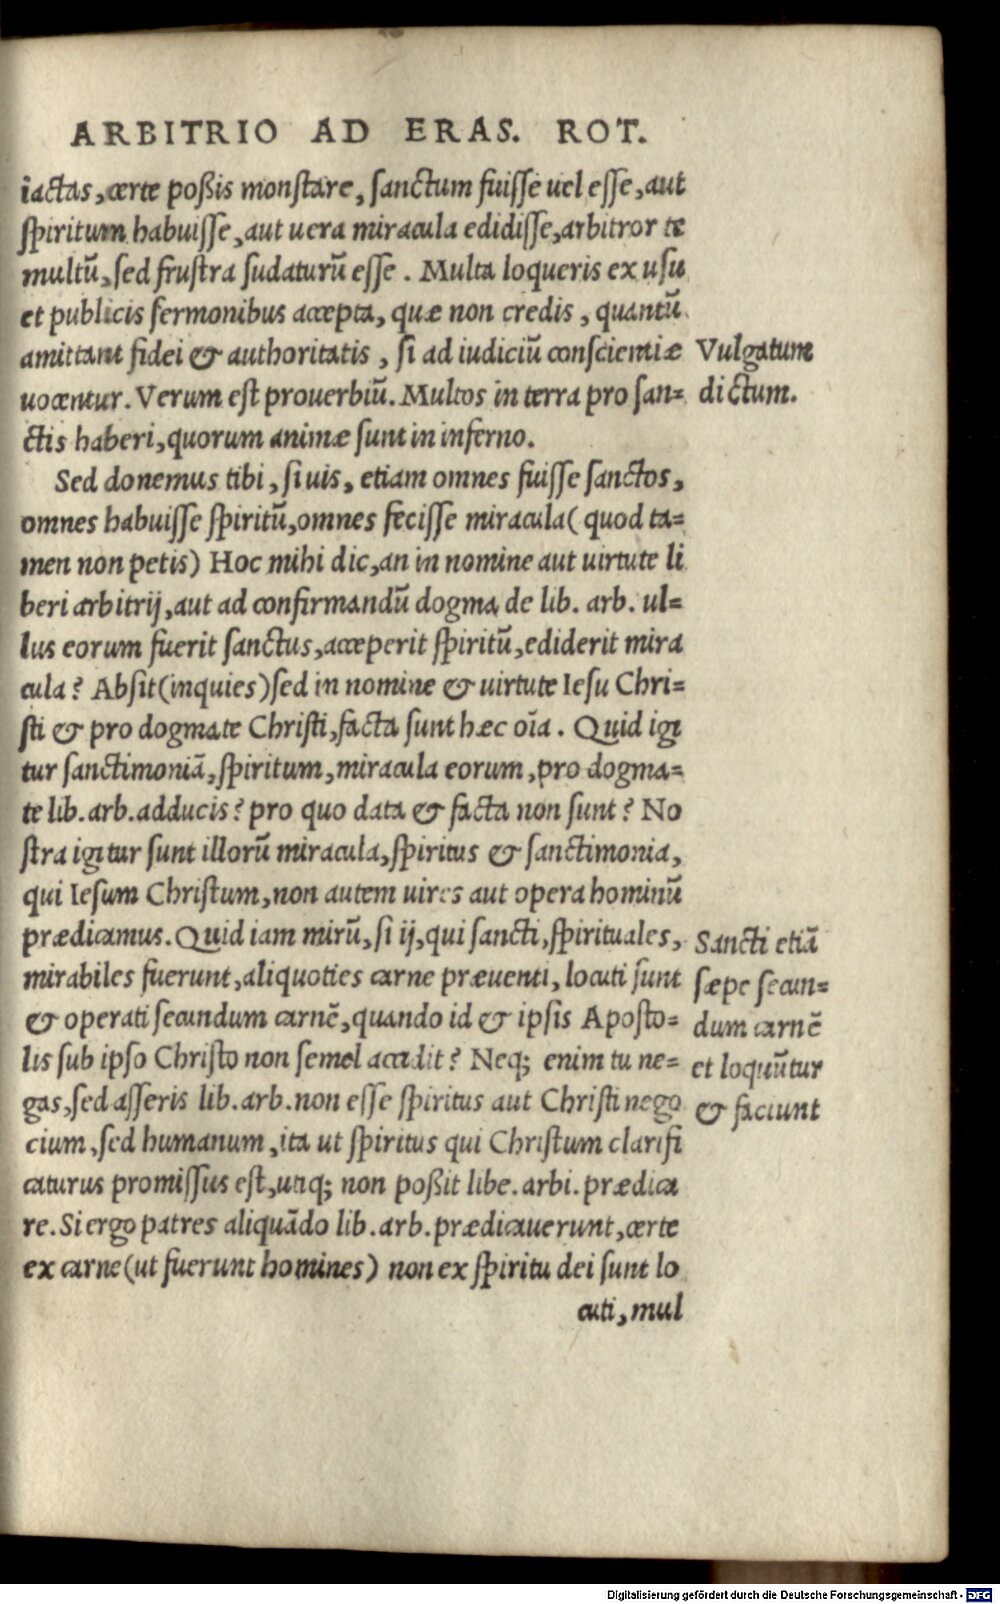 ARBITRIO AD ERAS. ROT.
iactas, certe poßis monstare, sanctum fuisse uel esse, aut
spiritum habuisse, aut uera miracula edidisse, arbitror te
multū, sed frustra sudaturū esse. Multa loqueris ex usu
et publicis sermonibus accepta, quæ non credis, quantū
amittant fidei & authoritatis, si ad iudiciū conscientiæ
uocentur. Verum est prouerbiū. Multos in terra pro san=
ctis haberi, quorum animæ sunt in inferno.
Vulgatum
dictum.
Sed donemus tibi, si uis, etiam omnes fuisse sanctos,
omnes habuisse spiritū, omnes fecisse miracula (quod ta=
men non petis) Hoc mihi dic, an in nomine aut uirtute li
beri arbitrij, aut ad confirmandū dogma de lib. arb. ul=
lus eorum fuerit sanctus, acceperit spiritū, ediderit mira
cula? Absit (inquies) sed in nomine & uirtute Iesu Chri=
sti & pro dogmate Christi, facta sunt hæc oīa. Quid igi
tur sanctimoniā, spiritum, miracula eorum, pro dogma=
te lib. arb. adducis? pro quo data & facta non sunt? No
stra igitur sunt illorū miracula, spiritus & sanctimonia,
qui Iesum Christum, non autem uires aut opera hominū
prædicamus. Quid iam mirū, si ij, qui sancti, spirituales,
mirabiles fuerunt, aliquoties carne præuenti, locuti sunt
& operati secundum carnē, quando id & ipsis Aposto=
lis sub ipso Christo non semel accidit? Neq; enim tu ne=
gas, sed asseris lib. arb. non esse spiritus aut Christi nego
cium, sed humanum, ita ut spiritus qui Christum clarifi
caturus promissus est, utiq; non poßit libe. arbi. prædica
re. Si ergo patres aliquādo lib. arb. prædicauerunt, certe
ex carne (ut fuerunt homines) non ex spiritu dei sunt lo
cuti, mul
Sancti etiā
sæpe secun=
dum carnē
et loquūtur
& faciunt
Digitalisierung gefördert durch die Deutsche Forschungsgemeinschaft - DFG